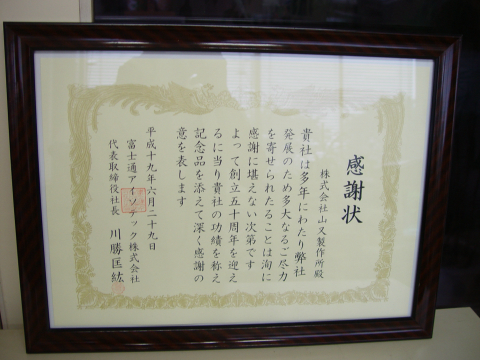 感謝状
株式会社山又製作所殿
貴社は多年にわたり弊社
発展のため多大なるご尽力
を寄せられたることは洵に
感謝に堪えない次第です
よって創立五十周年を迎え
るに当り貴社の功績を称え
記念品を添えて深く感謝の
意を表します
平成十九年六月二十九日
富士通アイソテック株式会社
代表取締役社長 川勝匡紘